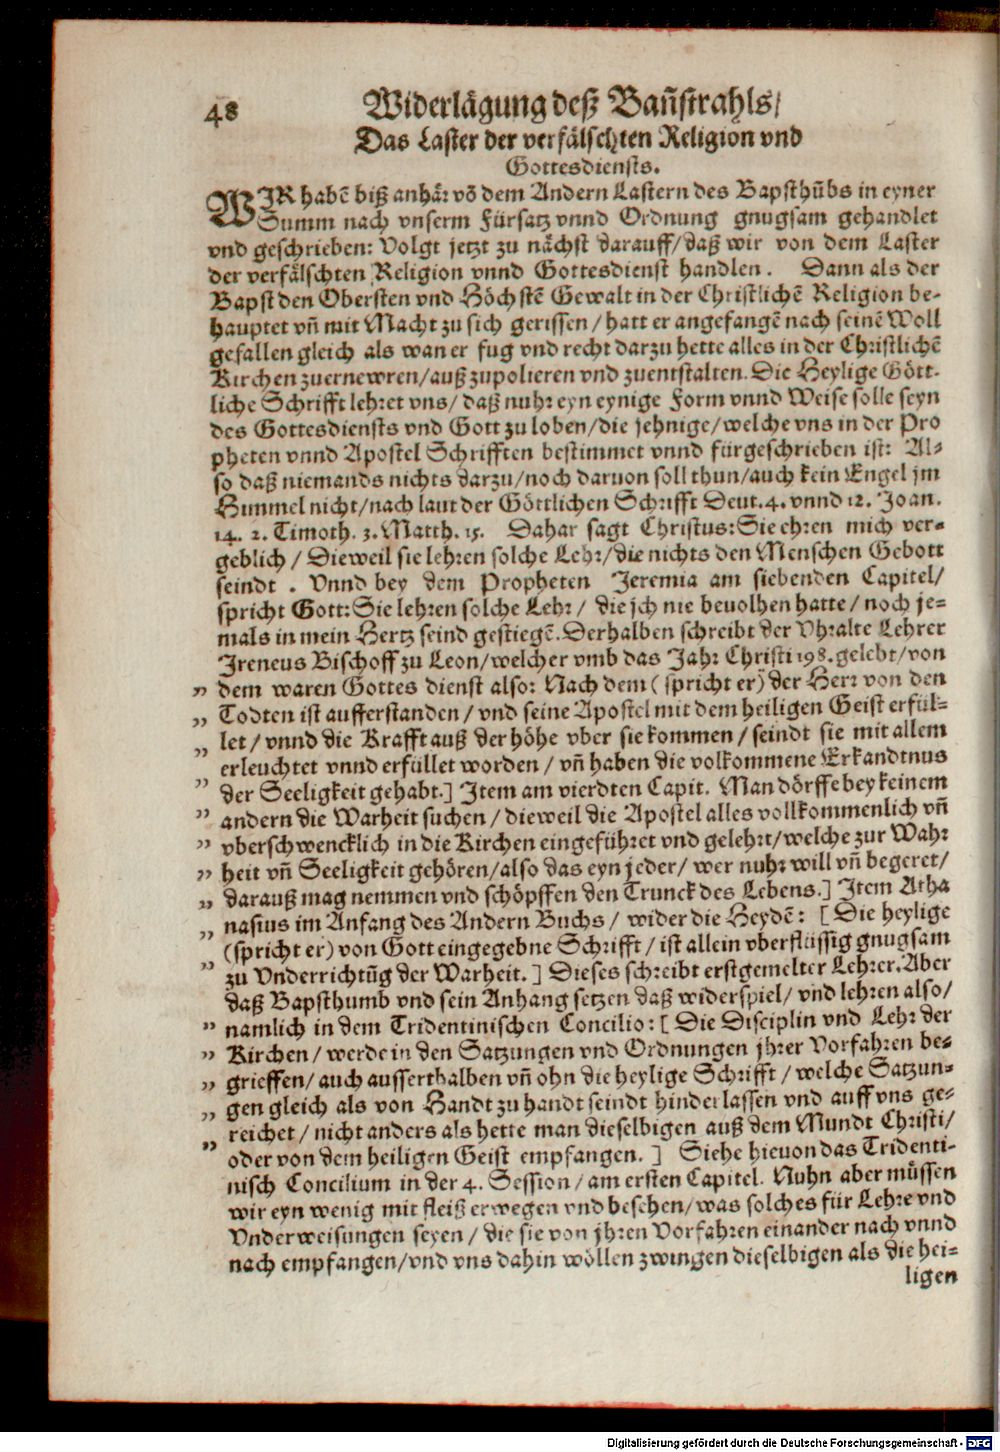 48 Widerlägung deß Bañstrahls/
Das Laster der verfälschten Religion vnd
Gottesdiensts.
WIR habē biß anhär võ dem Andern Lastern des Bapsthūbs in eyner
Summ nach vnserm Fürsatz vnnd Ordnung gnugsam gehandlet
vnd geschrieben: Volgt jetzt zu nächst darauff/ daß wir von dem Laster
der verfälschten Religion vnnd Gottesdienst handlen. Dann als der
Bapst den Obersten vnd Höchstē Gewalt in der Christlichē Religion be-
hauptet vñ mit Macht zu sich gerissen/ hatt er angefangē nach seinē Woll
gefallen gleich als wan er fug vnd recht darzu hette alles in der Christlichē
Kirchen zuernewren/ auß zupolieren vnd zuentstalten. Die Heylige Gött-
liche Schrifft lehret vns/ daß nuhr eyn eynige Form vnnd Weise solle seyn
des Gottesdiensts vnd Gott zu loben/ die jehnige/ welche vns in der Pro
pheten vnnd Apostel Schrifften bestimmet vnnd fürgeschrieben ist: Al-
so daß niemands nichts darzu/ noch daruon soll thun/ auch kein Engel jm
Himmel nicht/ nach laut der Göttlichen Schrifft Deut. 4. vnnd 12. Joan.
14. 2. Timoth. 3. Matth. 15. Dahar sagt Christus: Sie ehren mich ver-
geblich/ Dieweil sie lehren solche Lehr/ die nichts den Menschen Gebott
seindt. Vnnd bey dem Propheten Jeremia am siebenden Capitel/
spricht Gott: Sie lehren solche Lehr/ die jch nie beuolhen hatte/ noch je-
mals in mein Hertz seind gestiegē. Derhalben schreibt der Vhralte Lehrer
Jreneus Bischoff zu Leon/ welcher vmb das Jahr Christi 198. gelebt/ von
" dem waren Gottes dienst also: Nach dem (spricht er) der Herr von den
" Todten ist aufferstanden/ vnd seine Apostel mit dem heiligen Geist erfül-
" let/ vnnd die Krafft auß der höhe vber sie kommen/ seindt sie mit allem
erleuchtet vnnd erfüllet worden/ vñ haben die volkommene Erkandtnus
" der Seeligkeit gehabt.] Jtem am vierdten Capit. Man dörffe bey keinem
" andern die Warheit suchen/ dieweil die Apostel alles vollkommenlich vñ
" vberschwencklich in die Kirchen eingeführet vnd gelehrt/ welche zur Wahr
" heit vñ Seeligkeit gehören/ also das eyn jeder/ wer nuhr will vñ begeret/
" darauß mag nemmen vnd schöpffen den Trunck des Lebens.] Jtem Atha
" nasius im Anfang des Andern Buchs/ wider die Heydē: [Die heylige
(spricht er) von Gott eingegebne Schrifft/ ist allein vberflüssig gnugsam
" zu Vnderrichtūg der Warheit.] Dieses schreibt erstgemelter Lehrer. Aber
daß Bapsthumb vnd sein Anhang setzen daß widerspiel/ vnd lehren also/
" namlich in dem Tridentinischen Concilio: [Die Disciplin vnd Lehr der
" Kirchen/ werde in den Satzungen vnd Ordnungen jhrer Vorfahren be-
" grieffen/ auch ausserthalben vñ ohn die heylige Schrifft/ welche Satzun-
" gen gleich als von Handt zu handt seindt hinderlassen vnd auff vns ge-
" reichet/ nicht anders als hette man dieselbigen auß dem Mundt Christi/
oder von dem heiligen Geist empfangen.] Siehe hieuon das Tridenti-
nisch Concilium in der 4. Session/ am ersten Capitel. Nuhn aber müssen
wir eyn wenig mit fleiß erwegen vnd besehen/ was solches für Lehre vnd
Vnderweisungen seyen/ die sie von jhren Vorfahren einander nach vnnd
nach empfangen/ vnd vns dahin wöllen zwingen dieselbigen als die hei-
ligen
Digitalisierung gefördert durch die Deutsche Forschungsgemeinschaft - DFG